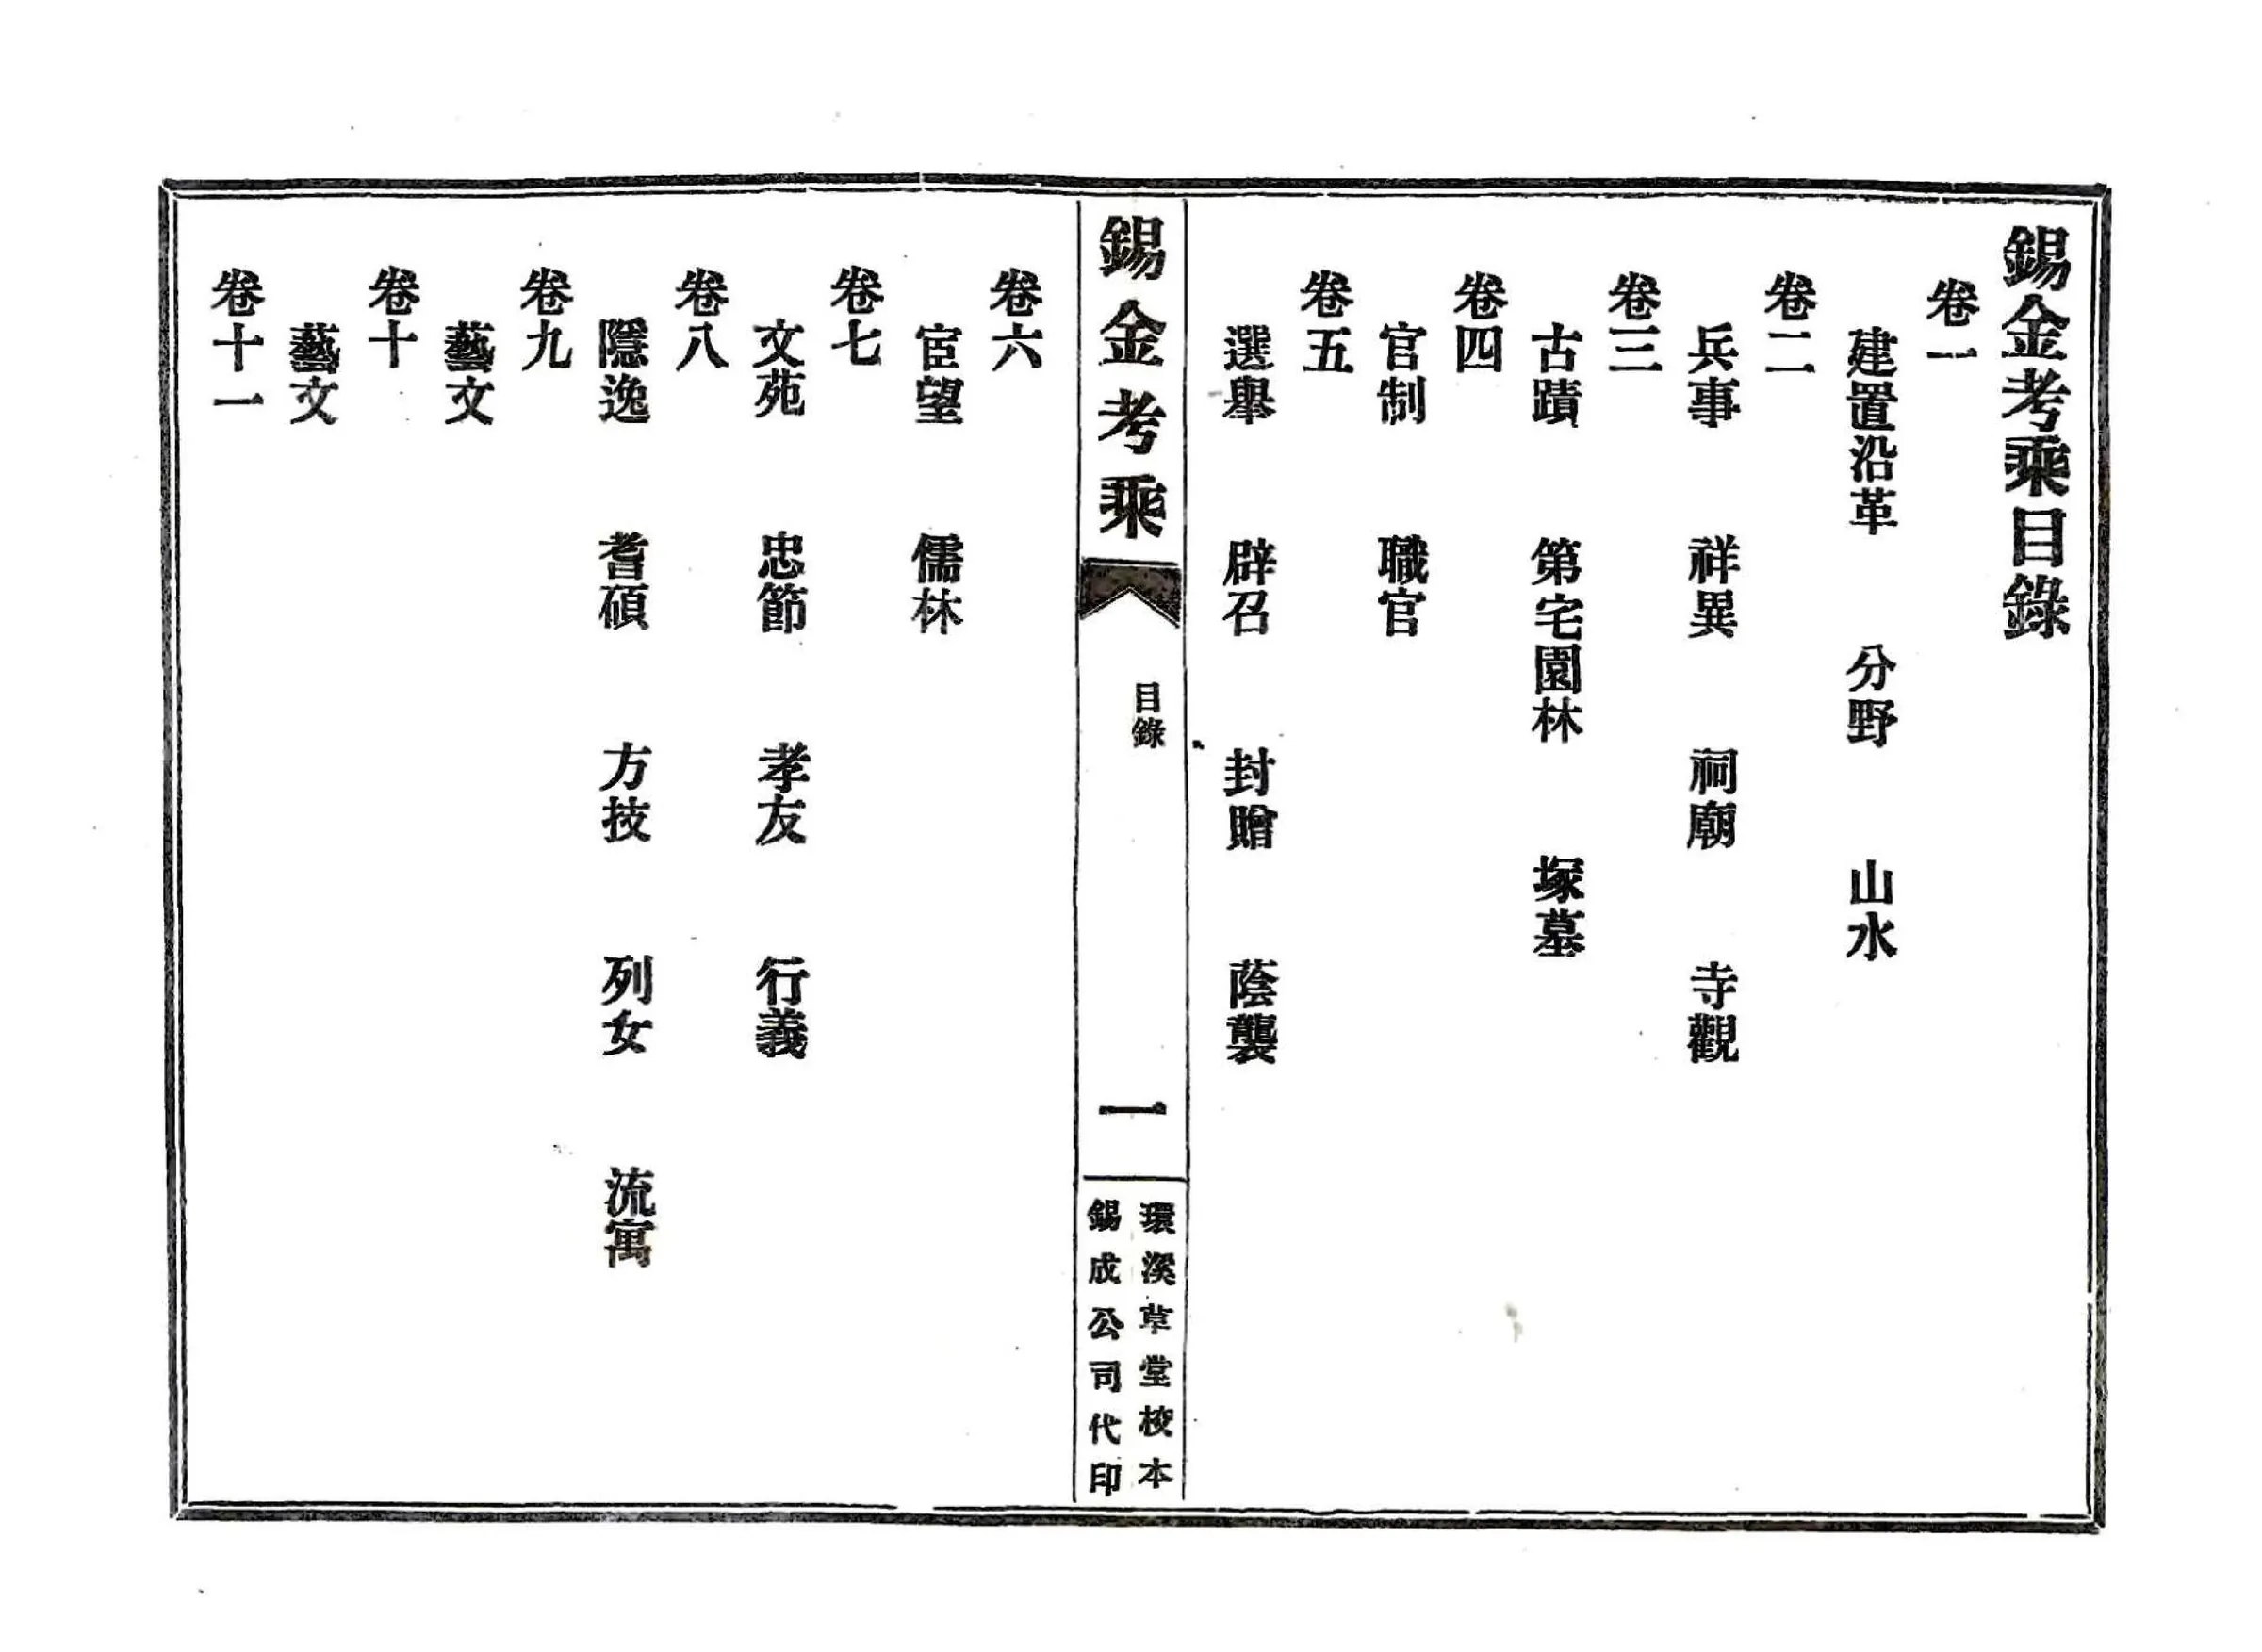 錫金考乘目錄
卷一
建置沿革 分野 山水
卷二
兵事 祥異 祠廟 寺觀
卷三
古蹟 第宅園林 塚墓
卷四
官制 職官
卷五
選舉 辟召 封贈 蔭襲
錫金考乘
目錄
一
環溪草堂校本
錫成公司代印
卷六
宦望 儒林
卷七
文苑 忠節 孝友 行義
卷八
隱逸 耆碩 方技 列女 流寓
卷九
藝文
卷十
藝文
卷十一